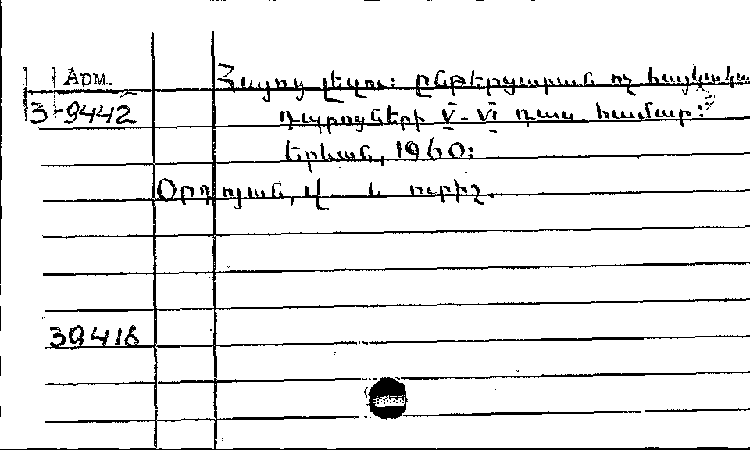 Арм.
3-9442
Հայոց լեզու: ընթերցարան ոչ հայկական
դպրոցների V-VI դաս. համար:
Երևան, 1960:
վ և ուրիշ.
39416